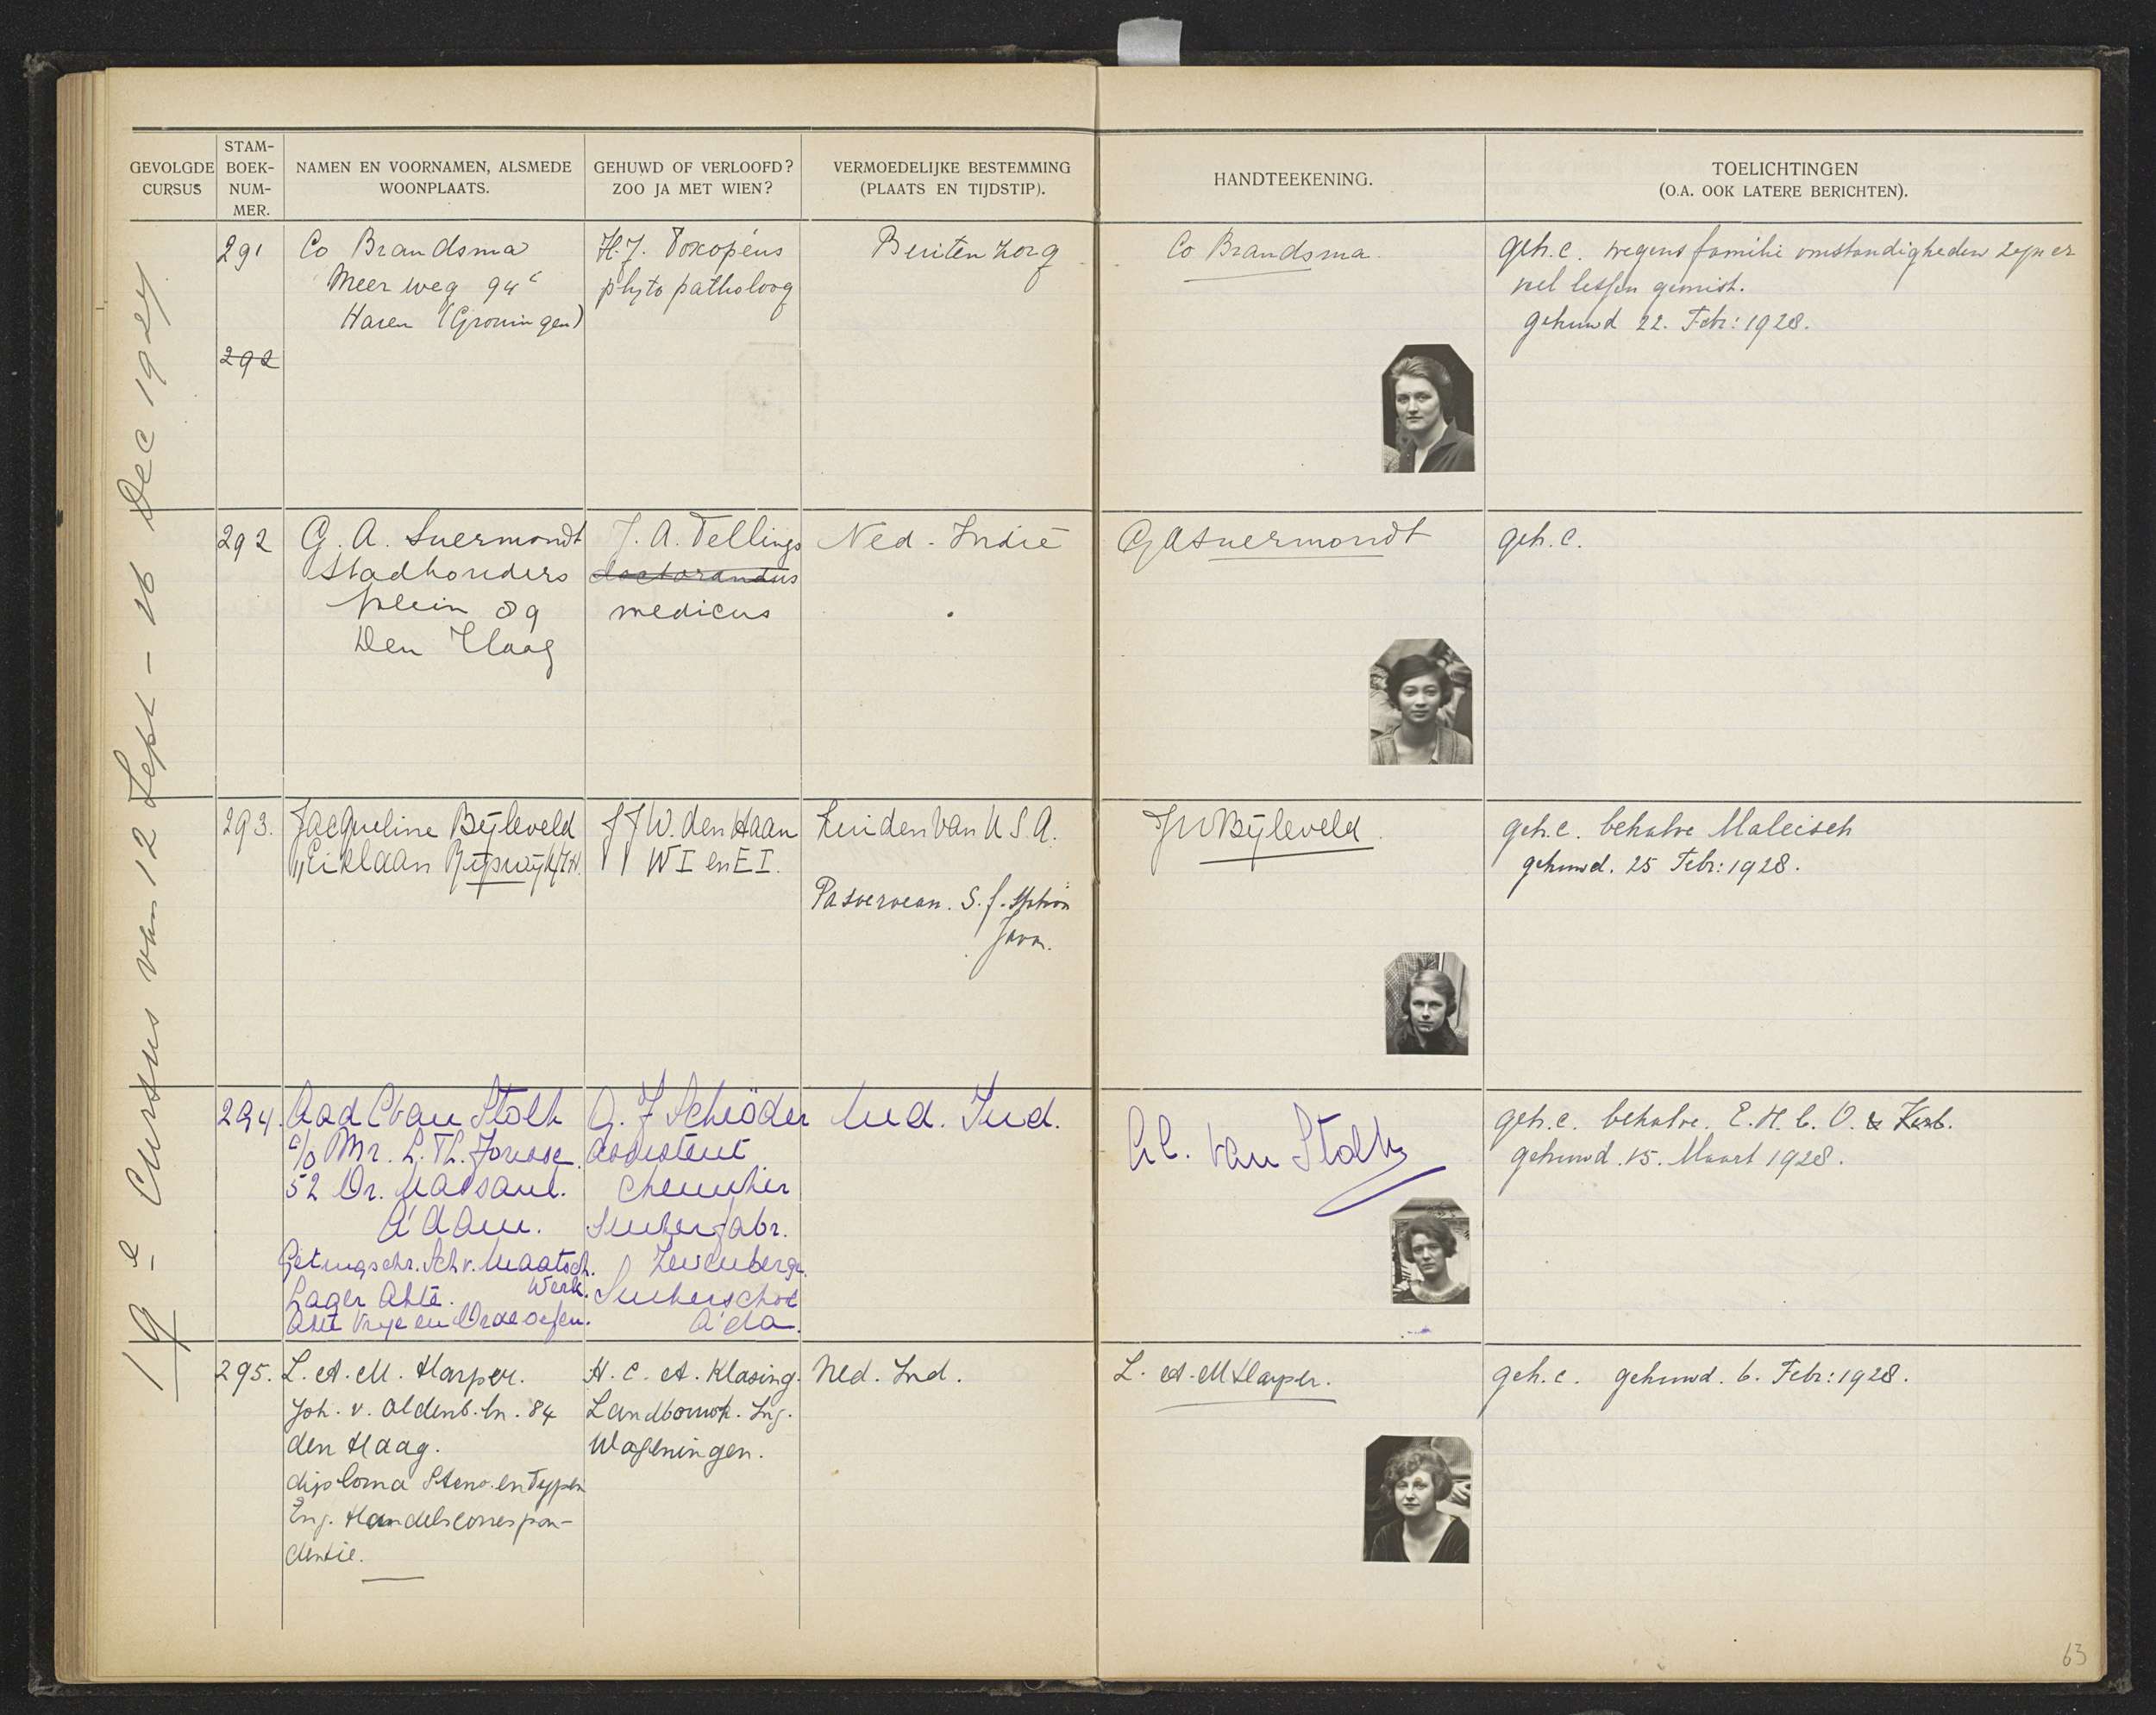 GEVOLGDE CURSUS
STAM-BOEK-NUM-MER.
NAMEN EN VOORNAMEN, ALSMEDE WOONPLAATS.
GEHUWD OF VERLOOFD? ZOO JA MET WIEN?
VERMOEDELIJKE BESTEMMING (PLAATS EN TIJDSTIP).
HANDTEEKENING.
TOELICHTINGEN (O.A. OOK LATERE BERICHTEN).
19e Cursus van 12 Sept - 16 Dec 1927
291
Co Brandsma
Meerweg 94c
Haren (Groningen)
H.J. Toxopéus
phytopatholoog
Buitenzorg
Co Brandsma.
geh. c. wegens familie omstandigheden zijn er
veel lessen gemist.
gehuwd 22. Febr: 1928.
292
292
G. A. Suermondt
Stadhouders
plein 89
Den Haag
J. A. Tellings
doctorandus
medicus
Ned - Indië
G A Suermondt
geh. c.
293.
Jacqueline Bijleveld
Eiklaan Rijswijk Z.H.
J J W. den Haan
W I en E I.
Zuiden van U S A.
Pasoeroean. S. f.
Java.
J W Bijleveld
geh. c. behalve Maleisch
gehuwd. 25 Febr: 1928.
294.
Aad C van Stolk
c/o Mr. L. Th.
52 Dr.
A'dam.
Lager Akte.
Akte Vrije en Orde oefen.
G. J Schröder
assistent
chemiker
Suikerfabr.
Zevenbergen
Suikerschool
A'dam.
Ned. Ind.
A C. van Stolk
geh. c. behalve. E.H.b.O. &
gehuwd. 15. Maart 1928.
295.
L. A. M. Harper.
Joh. v. Oldenb. ln. 84
den Haag.
diploma Steno. en Typen
Eng. Handelscorrespon-
dentie.
H. C. A. Klasing.
Landbouwk. Ing.
Wageningen.
Ned. Ind.
L. A. M Harper.
geh. c. gehuwd. 6. Febr: 1928.
63